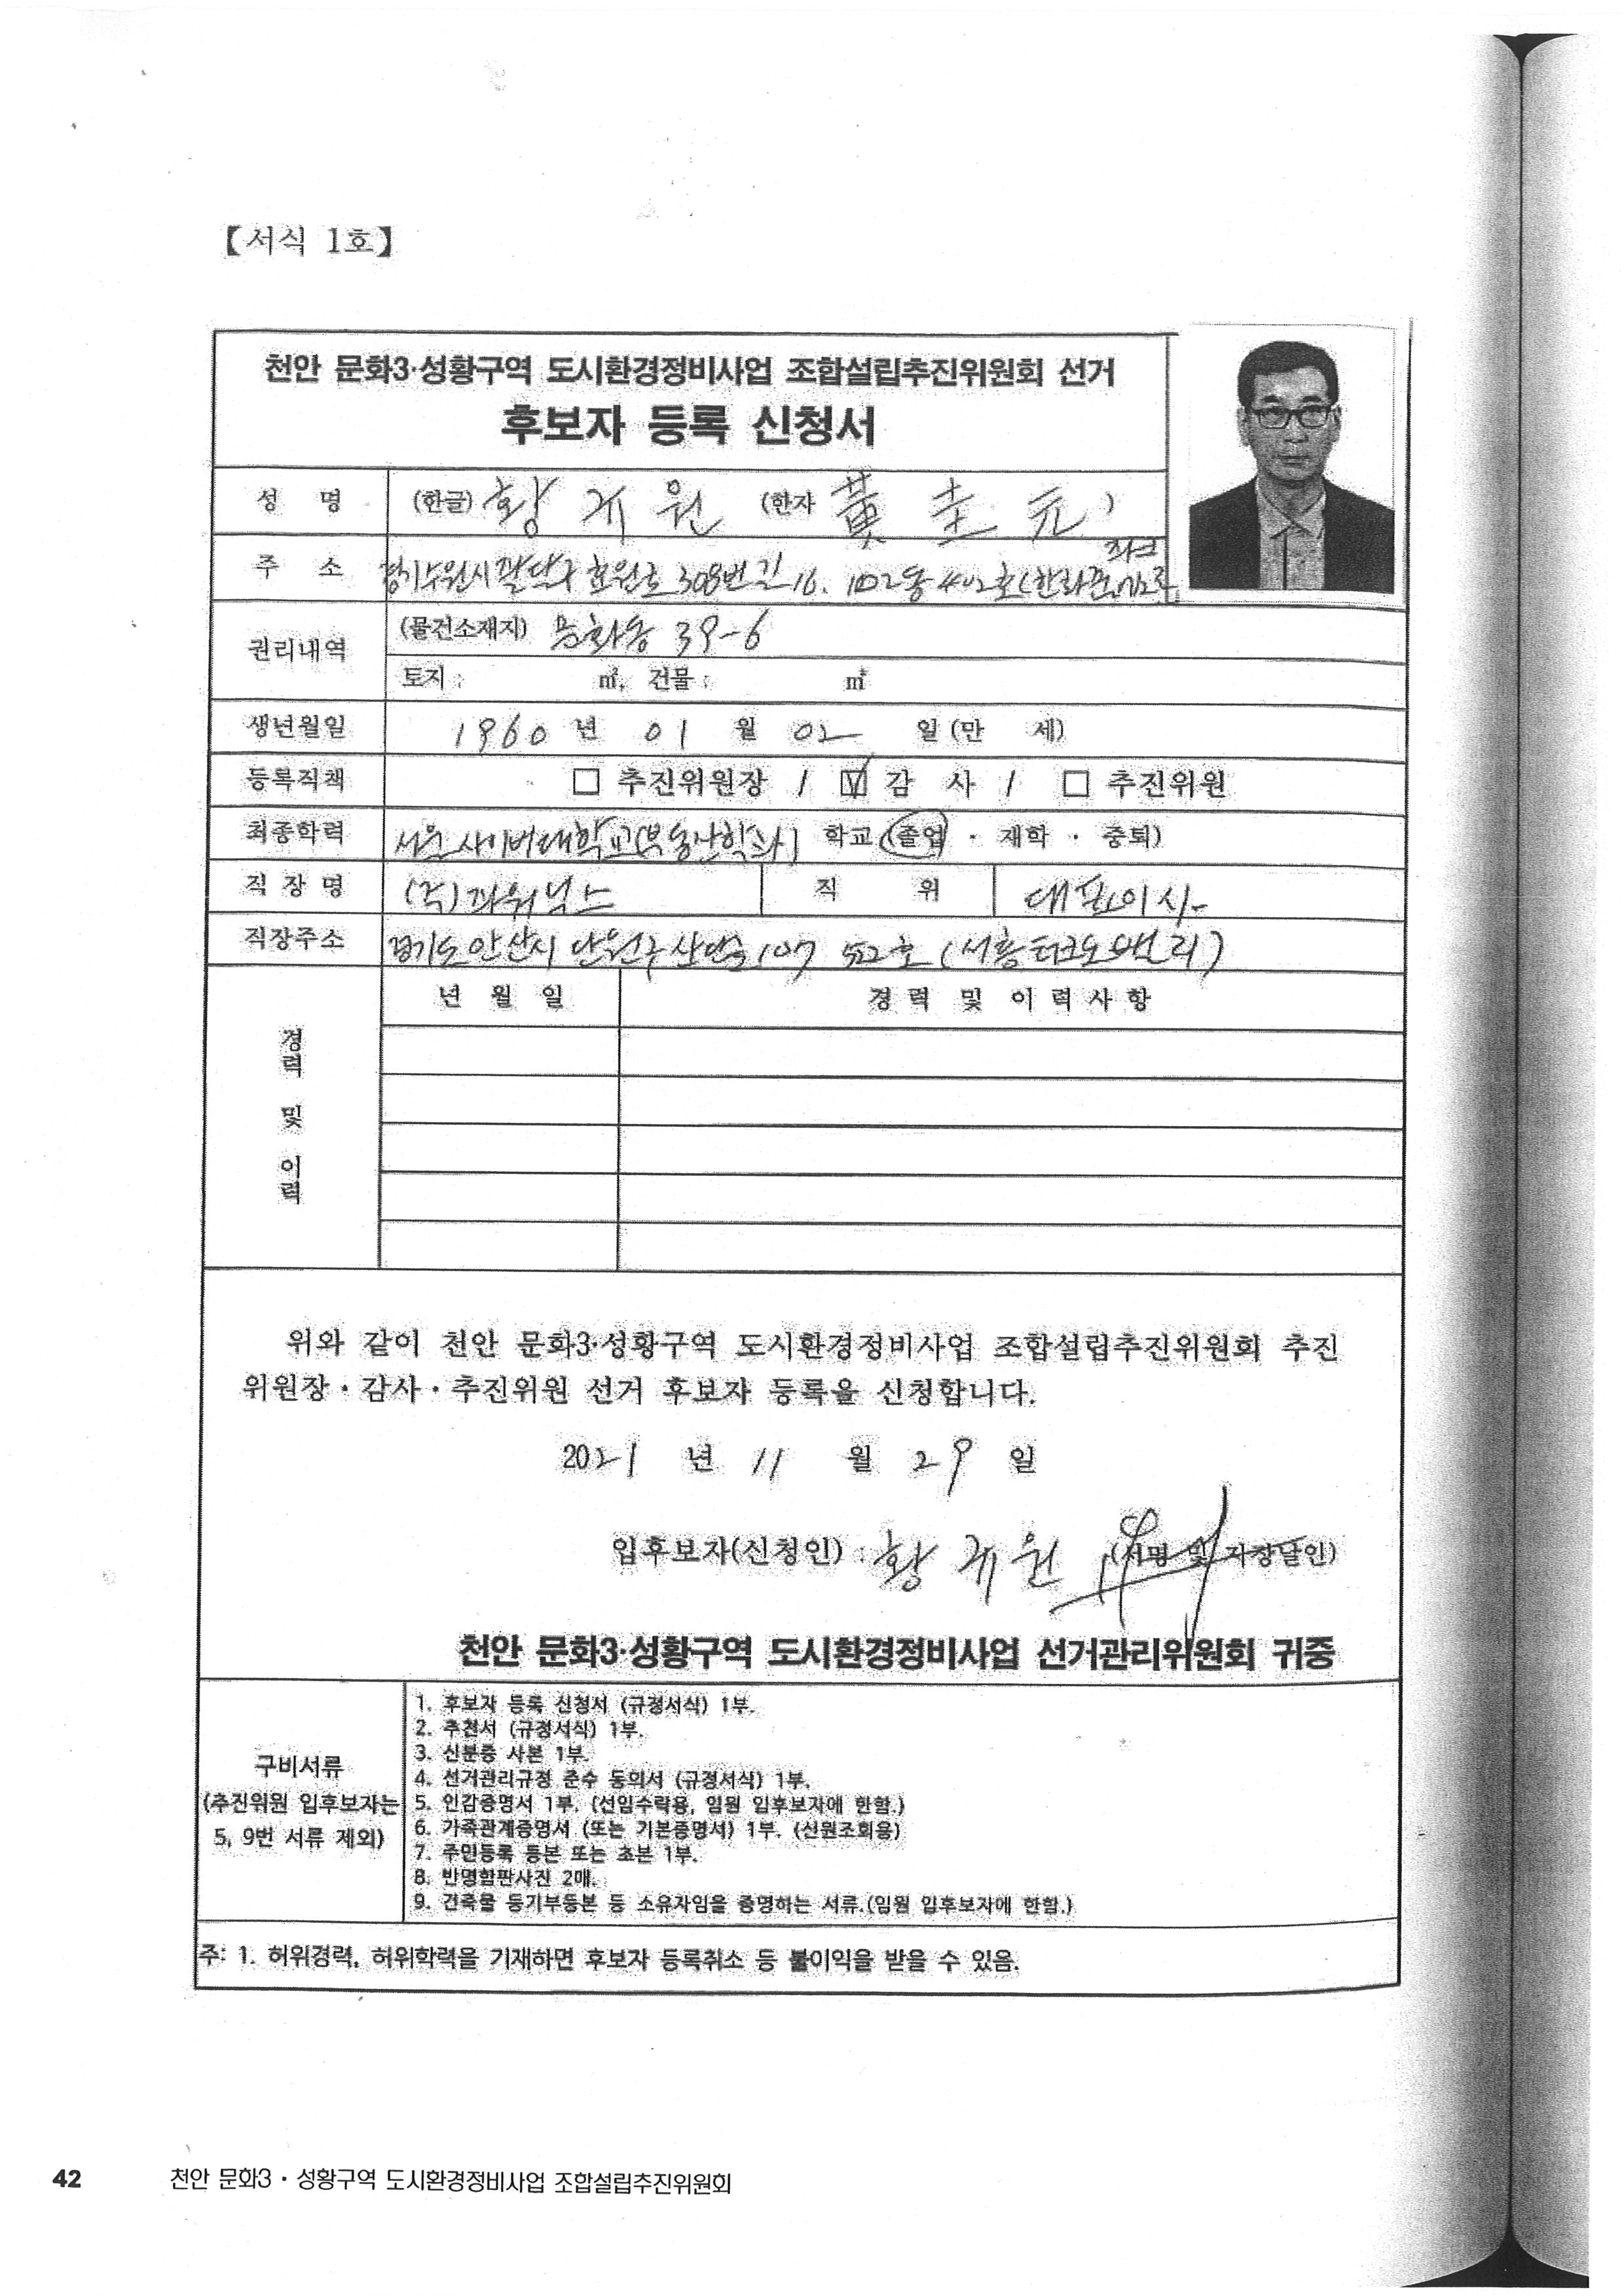 【서식 1호】
천안 문화3·성황구역 도시환경정비사업 조합설립추진위원회 선거
후보자 등록 신청서
성 명 (한글) 황 규 원 (한자 黃 圭 元 )
주 소 경기 수원시 팔달구 효원로 308번길 16. 102동 402호(한라비발디 파크
권리내역 (물건소재지) 문화동 39-6
토지 : ㎡, 건물 : ㎡
생년월일 1960 년 01 월 02 일 (만 세)
등록직책 □ 추진위원장 / ☑ 감 사 / □ 추진위원
최종학력 서울사이버대학교(부동산학과) 학교 (졸업 · 재학 · 중퇴)
직 장 명 (주)파워닉스 직 위 대표이사
직장주소 경기도 안산시 단원구 산단로 107 522호 (서흥테크노밸리)
년 월 일 경 력 및 이 력 사 항
경력 및 이력
위와 같이 천안 문화3·성황구역 도시환경정비사업 조합설립추진위원회 추진
위원장·감사·추진위원 선거 후보자 등록을 신청합니다.
2021 년 11 월 29 일
입후보자(신청인) : 황 규 원 (서명 및 지장날인)
천안 문화3·성황구역 도시환경정비사업 선거관리위원회 귀중
구비서류
(추진위원 입후보자는
5, 9번 서류 제외)
1. 후보자 등록 신청서 (규정서식) 1부.
2. 추천서 (규정서식) 1부.
3. 신분증 사본 1부.
4. 선거관리규정 준수 동의서 (규정서식) 1부.
5. 인감증명서 1부. (선임수락용, 임원 입후보자에 한함.)
6. 가족관계증명서 (또는 기본증명서) 1부. (신원조회용)
7. 주민등록 등본 또는 초본 1부.
8. 반명함판사진 2매.
9. 건축물 등기부등본 등 소유자임을 증명하는 서류.(임원 입후보자에 한함.)
주: 1. 허위경력, 허위학력을 기재하면 후보자 등록취소 등 불이익을 받을 수 있음.
42 천안 문화3 · 성황구역 도시환경정비사업 조합설립추진위원회